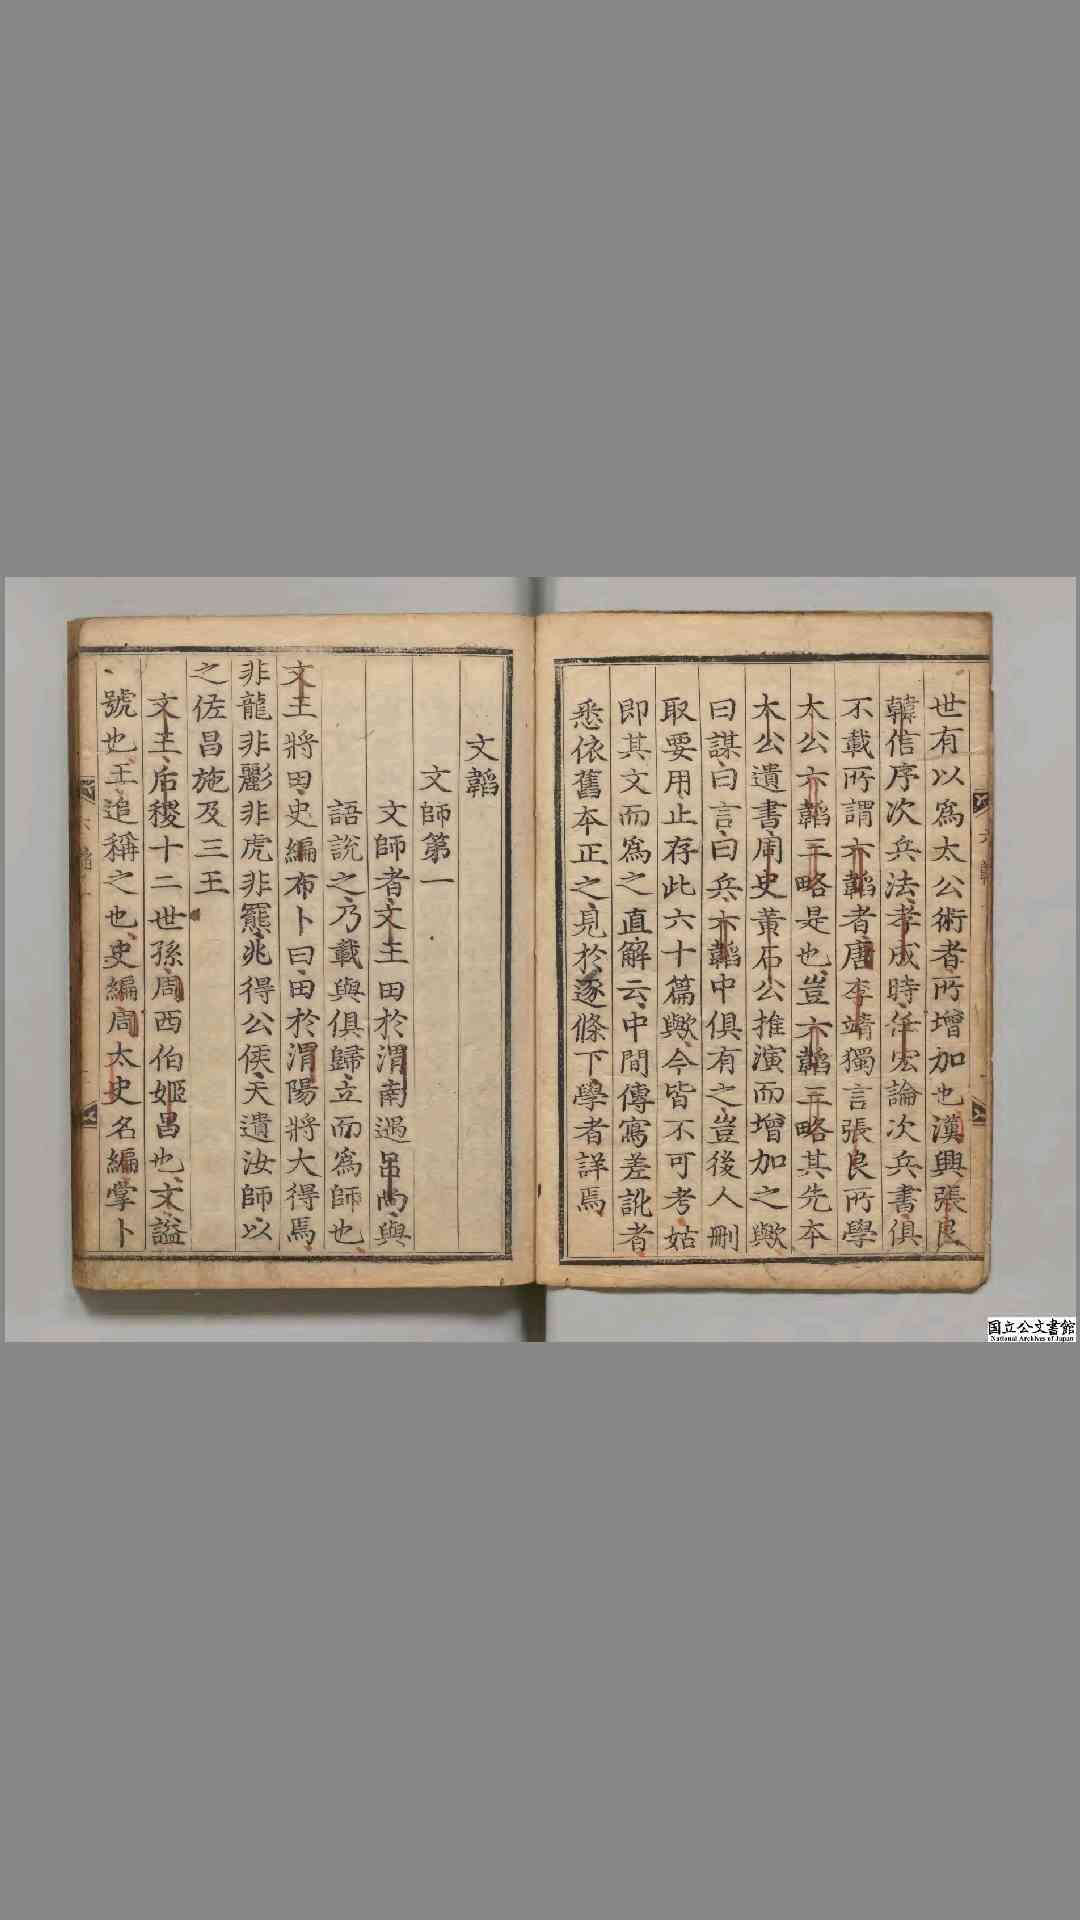 世有以爲太公術者所增加也漢興張良
韓信序次兵法孝成時任宏論次兵書俱
不載所謂六韜者唐李靖獨言張良所學
太公六韜三略是也豈六韜三略其先本
太公遺書周史黃石公推演而增加之歟
曰謀曰言曰兵六韜中俱有之豈後人刪
取要用止存此六十篇歟今皆不可考姑
即其文而爲之直解云中間傳寫差訛者
悉依舊本正之見於逐條下學者詳焉
文韜
文師第一
文師者文王田於渭南遇呂尚與
語說之乃載與俱歸立而爲師也
文王將田史編布卜曰田於渭陽將大得焉
非龍非彲非虎非羆兆得公侯天遺汝師以
之佐昌施及三王
文王后稷十二世孫周西伯姬昌也文謚
號也王追稱之也史編周太史名編掌卜
国立公文書館
National Archives of Japan